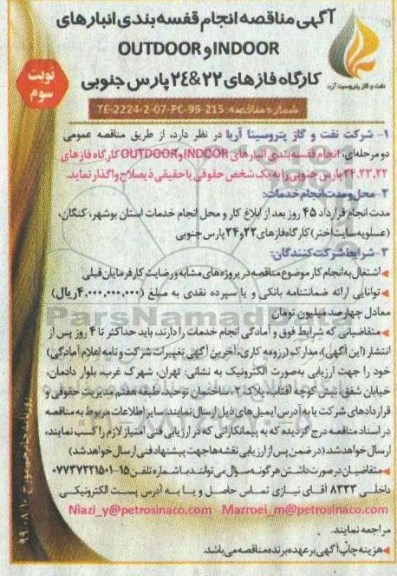 آگهی مناقصه انجام قفسه بندی انبارهای
INDOOR و OUTDOOR
کارگاه فازهای ۲۲&۲۴ پارس جنوبی
نوبت سوم
نفت و گاز پتروسینا آریا
شماره مناقصه: TE-2224-2-07-PC-99-215
۱- شرکت نفت و گاز پتروسینا آریا در نظر دارد، از طریق مناقصه عمومی
دو مرحله‌ای، انجام قفسه بندی انبارهای INDOOR و OUTDOOR کارگاه فازهای
۲۲,۲۳,۲۴ پارس جنوبی را به یک شخص حقوقی یا حقیقی ذیصلاح واگذار نماید.
۲- محل و مدت انجام خدمات:
مدت انجام قرارداد ۴۵ روز بعد از ابلاغ کار و محل انجام خدمات استان بوشهر، کنگان،
(عسلویه سایت اختر) کارگاه فازهای ۲۲ و ۲۴ پارس جنوبی
۳- شرایط شرکت کنندگان:
اشتغال به انجام کار موضوع مناقصه در پروژه های مشابه و رضایت کارفرمایان قبلی
توانایی ارائه ضمانتنامه بانکی و یا سپرده نقدی به مبلغ (۴,۰۰۰,۰۰۰,۰۰۰ ریال)
معادل چهارصد میلیون تومان
متقاضیانی که شرایط فوق و آمادگی انجام خدمات را دارند، باید حداکثر تا ۴ روز پس از
انتشار (این آگهی)، مدارک (رزومه کاری، آخرین آگهی تغییرات شرکت و نامه اعلام آمادگی)
خود را جهت ارزیابی بصورت الکترونیک به نشانی: تهران، شهرک غرب، بلوار دادمان،
خیابان شفق، نبش کوچه آفتاب، پلاک ۲، ساختمان توحید، طبقه هفتم، مدیریت حقوقی و
قراردادهای شرکت یا به آدرس ایمیل های ذیل ارسال نمایند، سایر اطلاعات مربوط به مناقصه
در اسناد مناقصه درج گردیده که به پیمانکارانی که در ارزیابی فنی امتیاز لازم را کسب نمایند،
ارسال خواهد شد. (در ضمن پس از ارزیابی نقشه ها جهت پیشنهاد فنی ارسال خواهد شد)
متقاضیان در صورت داشتن هر گونه سوال می توانند با شماره تلفن ۱۵-۰۷۷۳۷۲۲۱۵۰۱
داخلی ۸۳۳۳ آقای نیازی تماس حاصل و یا به آدرس پست الکترونیکی
Niazi_y@petrosinaco.com Mazroei_m@petrosinaco.com
مراجعه نمایند.
هزینه چاپ آگهی بر عهده برنده مناقصه می باشد.
ParsNamad